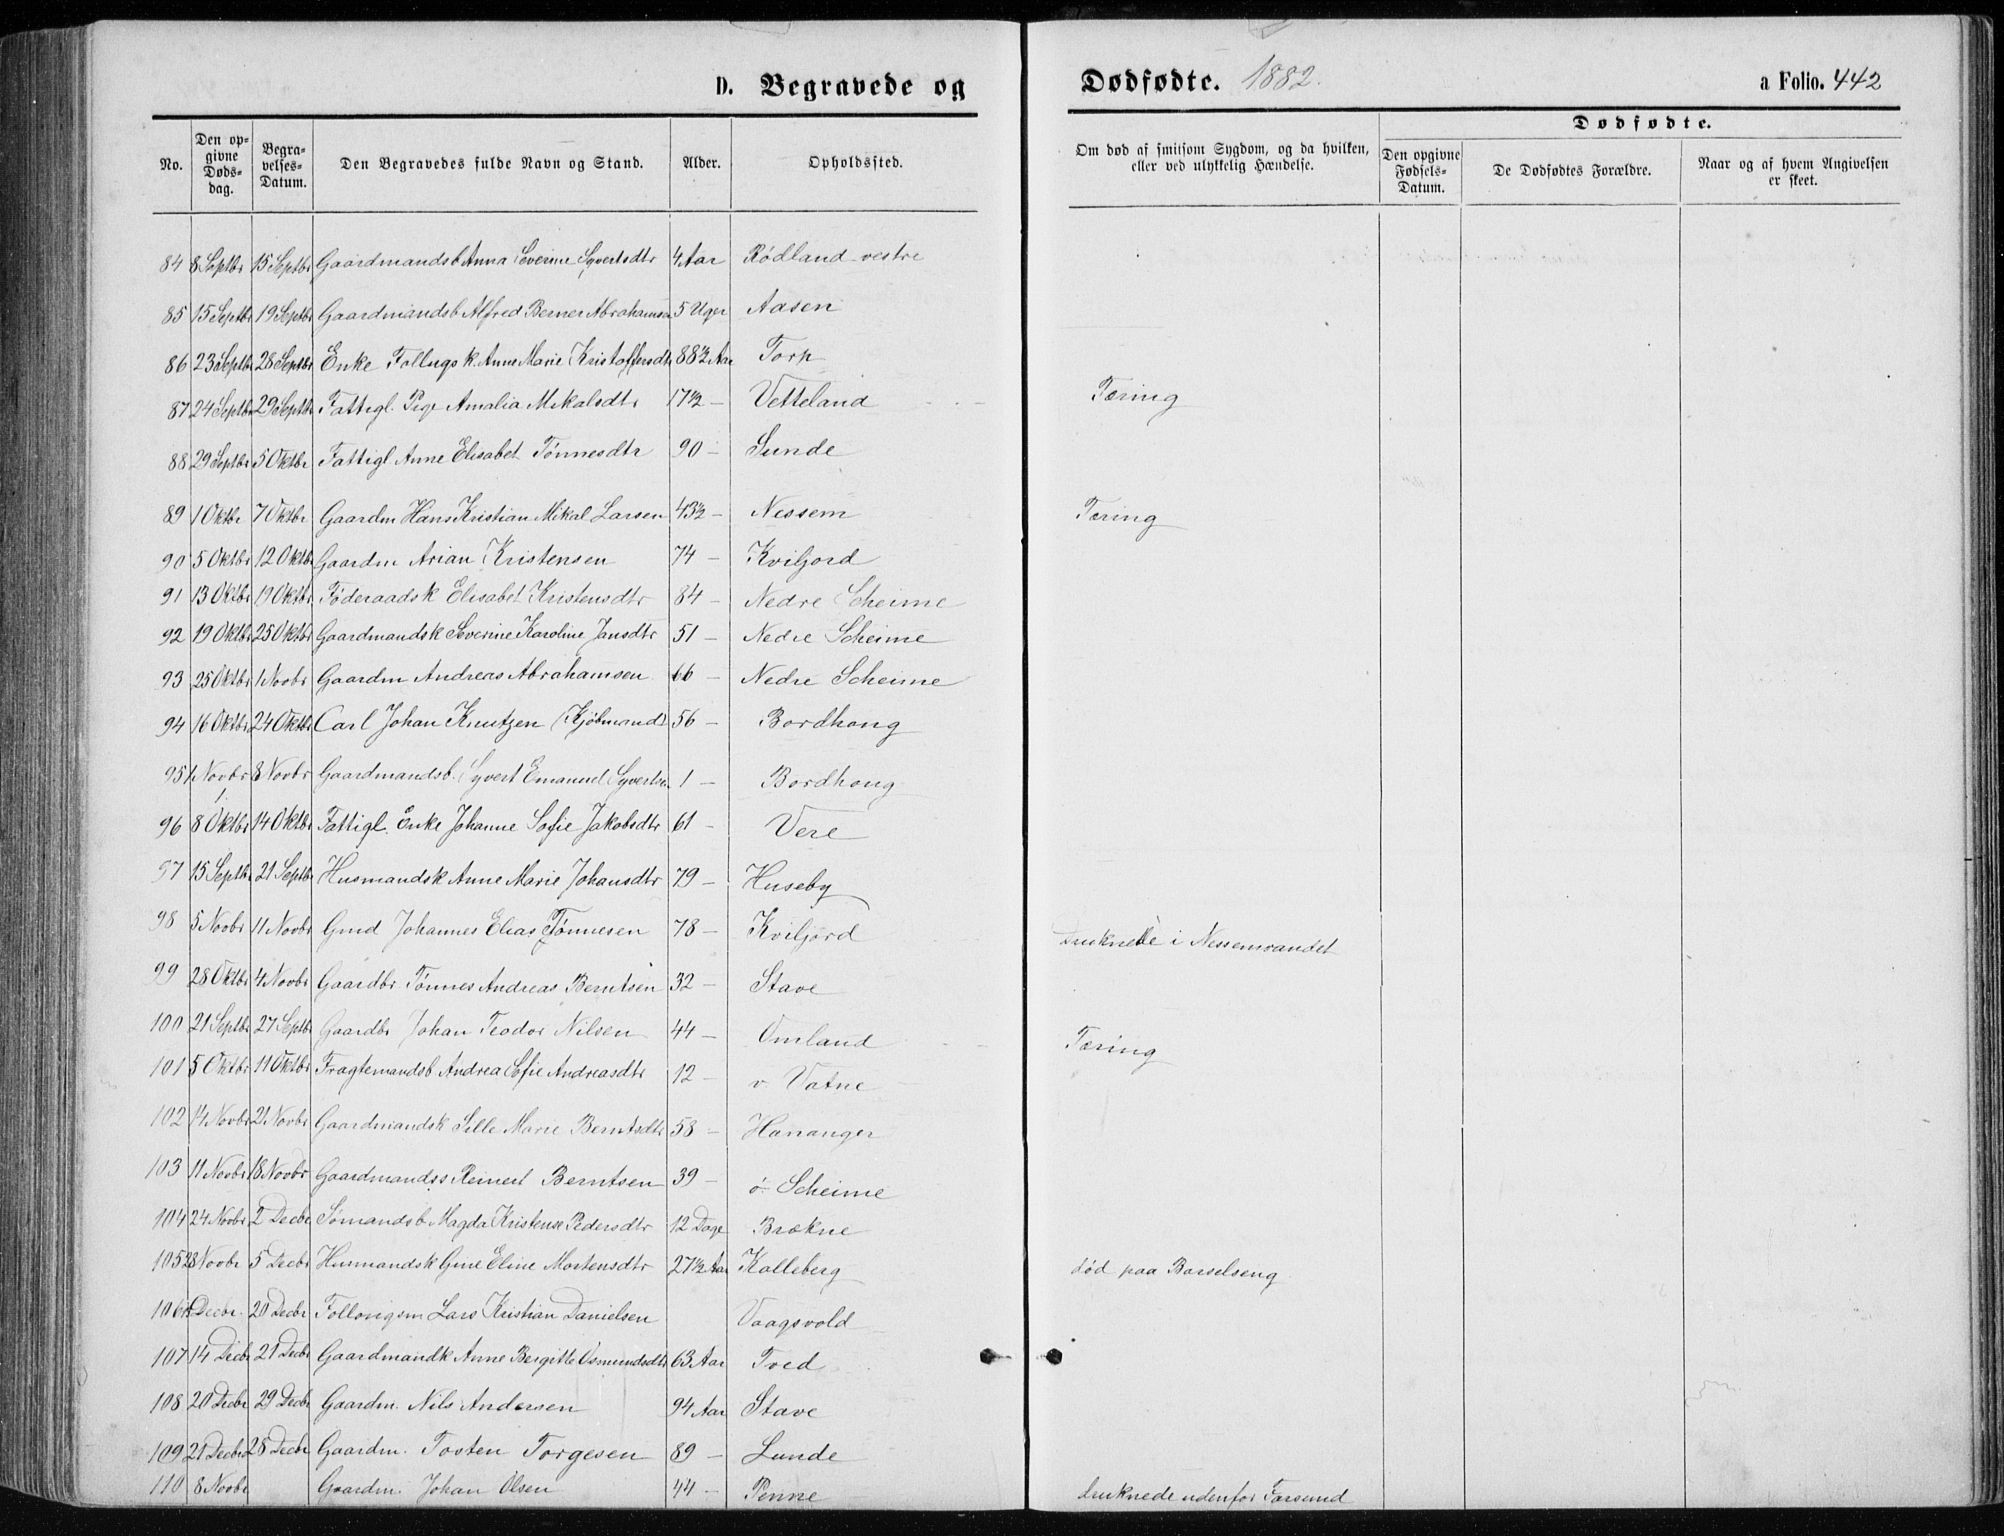 D. Begravede og Dødfødte. 1882. a Folio. 442
No. Den opgivne Dødsdag. Begravelses-Datum. Den Begravedes fulde Navn og Stand. Alder. Opholdssted. Om død af smitsom Sygdom, og da hvilken, eller ved ulykkelig Hændelse. Dødfødte. Den opgivne Fødsels-Datum. De Dødfødtes Forældre. Naar og af hvem Angivelsen er skeet.
84 8 Septbr 15 Septbr Gaardmandsb Anna Severine Syvertsdtr 4 Aar Rødland vestre
85 15 Septbr 19 Septbr Gaardmandsb Alfred Berner Abrahamsen 5 Uger Aasen
86 23 Septbr 28 Septbr Enke Follugsk. Anne Marie Kristoffersdtr 88½ Aar Torp
87 24 Septbr 29 Septbr Fattigl. Pige Amalia Mikalsdtr 17½ - Vetteland Tæring
88 29 Septbr 5 Oktbr Fattigl Anne Elisabet Tønnesdtr 90 - Sunde
89 1 Oktbr 7 Oktbr Gaardm Hans Kristian Mikal Larsen 43½ - Nessem Tæring
90 5 Oktbr 12 Oktbr Gaardm Arian Kristensen 74 - Kviljord
91 13 Oktbr 19 Oktbr Føderaadsk Elisabet Kristensdtr 84 - Nedre Scheime
92 19 Oktbr 25 Oktbr Gaardmandsk Severine Karoline Jansdtr 51 - Nedre Scheime
93 25 Oktbr 1 Novbr Gaardm Andreas Abrahamsen 66 - Nedre Scheime
94 16 Oktbr 24 Oktbr Carl Johan Knutzen (Kjøbmand) 56 - Bordhoug
95 1 Novbr 8 Novbr Gaardmandsb. Syvert Emanuel Syvertsen 1 - Bordhoug
96 8 Oktbr 14 Oktbr Fattigl. Enke Johanne Sofie Jakobsdtr 61 - Vere
97 15 Septbr 21 Septbr Husmandsk Anne Marie Johansdtr 79 - Huseby
98 5 Novbr 11 Novbr Gmd Johannes Elias Tønnesen 78 - Kviljord druknede i Nessemvandet
99 28 Oktbr 4 Novbr Gaardbr. Tønnes Andreas Berntsen 32 - Stave
100 21 Septbr 27 Septbr Gaardbr Johan Teodor Nilsen 44 - Omland Tæring
101 5 Oktbr 11 Oktbr Fragtemandsb Andrea Sofie Andreasdtr 12 - v. Vatne
102 14 Novbr 21 Novbr Gaardmandsk Sille Marie Berntsdtr 58 - Hananger
103 11 Novbr 18 Novbr Gaardmandss Reinert Berntsen 39 - ø. Scheime
104 24 Novbr 2 Decbr Sømandsb Magda Kristense Pedersdtr 12 Dage Brækne
105 28 Novbr 5 Decbr Husmandsk Gine Eline Mortensdtr 27½ Aar Kalleberg død paa Barselseng
106 Decbr. 20 Decbr Follovigsm Lars Kristian Danielsen Vaagsvold
107 14 Decbr 21 Decbr Gaardmandk Anne Bergitte Osmundsdtr 63 Aar Tved
108 20 Decbr 29 Decbr Gaardm. Nils Andersen 94 Aar Stave
109 21 Decbr 28 Decbr Gaardm. Tosten Torgesen 89 - Lunde
110 8 Novbr Gaardm. Johan Olsen 44 - Penne druknede udenfor Farsund